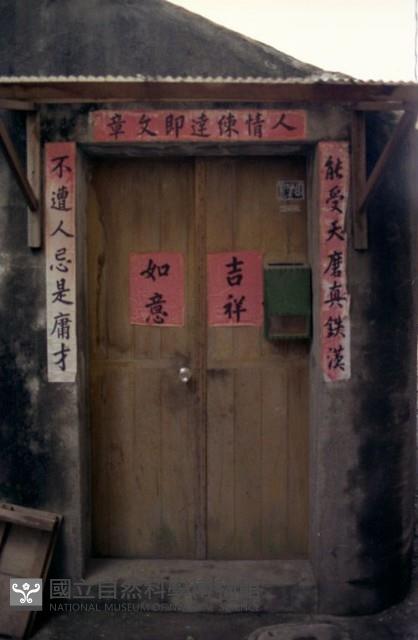 人情練達即文章
能受天磨真鉄漢
不遭人忌是庸才
吉祥
如意
國立自然科學博物館
NATIONAL MUSEUM OF NATURAL SCIENCE